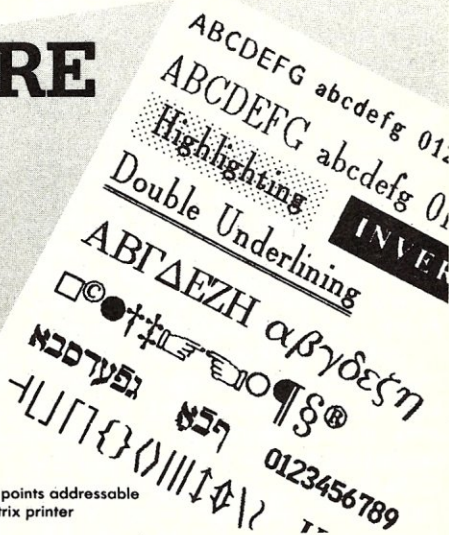 RE
ABCDEFG abcdefg 012
ABCDEFG abcdefg 01
Highlighting
INVER
Double Underlining
ΑΒΓΔΕΖΗ αβγδεζη
□©●†‡☞☜○¶§®
0123456789
points addressable
trix printer